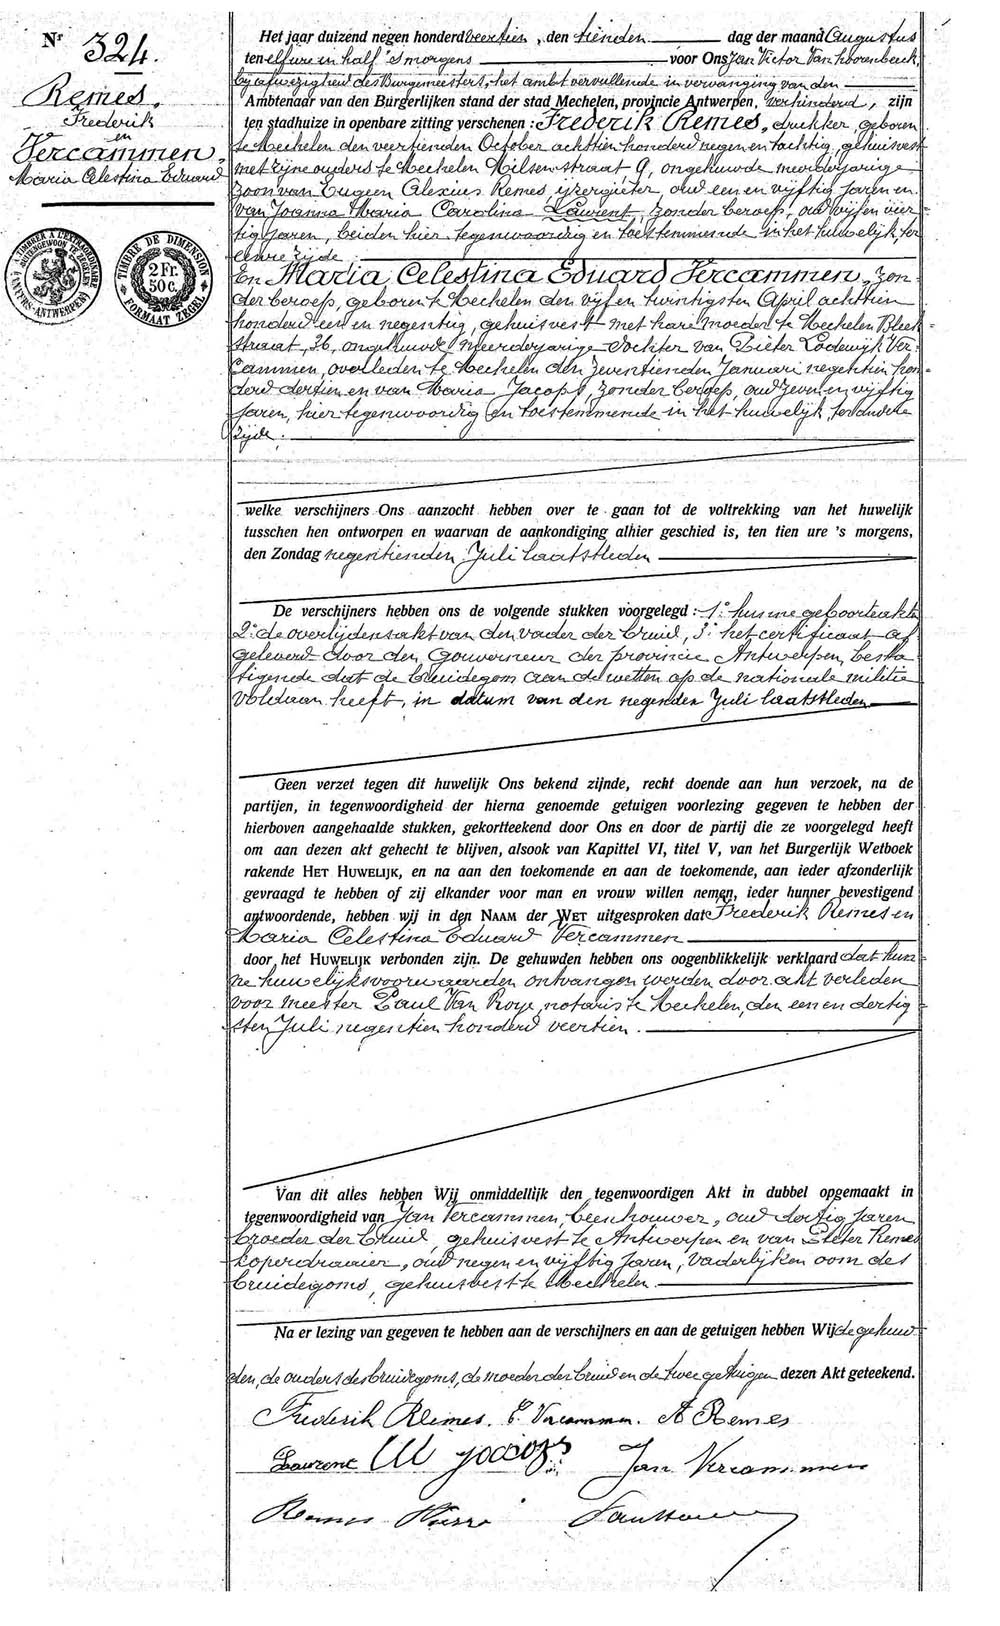 Nr 324.
Remes,
Frederik
en
Vercammen,
Maria Celestina Eduard
TIMBRE A L'EXTRAORDINAIRE
BUITENGEWOON TE ZEGELEN
(ANVERS-ANTWERPEN)
TIMBRE DE DIMENSION
2 Fr.
50 c.
FORMAAT ZEGEL
Het jaar duizend negen honderd veertien, den tienden dag der maand Augustus
ten elf ure en half 's morgens voor Ons Jan Victor Van Hoorenbeeck,
bij afwezigheid des Burgmeesters, het ambt vervullende in vervanging van den
Ambtenaar van den Burgerlijken stand der stad Mechelen, provincie Antwerpen, verhinderd, zijn
ten stadhuize in openbare zitting verschenen: Frederik Remes, drukker, geboren
te Mechelen den veertienden October achttien honderd negen en tachtig, gehuisvest
met zijne ouders te Mechelen Milsenstraat 9, ongehuwde meerderjarige
zoon van Eugeen Alexius Remes, ijzergieter, oud een en vijftig jaren en
van Joanna Maria Carolina Laurent, zonder beroep, oud vijf en veer
tig jaren, beiden hier tegenwoordig en toestemmende in het huwelijk, ter
eenre zijde
En Maria Celestina Eduard Vercammen, zon
der beroep, geboren te Mechelen den vijf en twintigsten April achttien
honderd een en negentig, gehuisvest met hare moeder te Mechelen Bleek
straat, 36, ongehuwde meerderjarige dochter van Pieter Lodewijk Ver
cammen, overleden te Mechelen den zeventienden Januari negentien hon
derd dertien en van Maria Jacops, zonder beroep, oud zeven en vijftig
jaren, hier tegenwoordig en toestemmende in het huwelijk, ter andere
zijde.
welke verschijners Ons aanzocht hebben over te gaan tot de voltrekking van het huwelijk
tusschen hen ontworpen en waarvan de aankondiging alhier geschied is, ten tien ure 's morgens,
den Zondag negentienden Juli laatstleden
De verschijners hebben ons de volgende stukken voorgelegd: 1° hunne geboorteakten
2° de overlijdensakt van den vader der bruid, 3° het certificaat af
geleverd door den Gouverneur der provincie Antwerpen, besta
tigende dat de bruidegom aan de wetten op de nationale militie
voldaan heeft, in datum van den negenden Juli laatstleden
Geen verzet tegen dit huwelijk Ons bekend zijnde, recht doende aan hun verzoek, na de
partijen, in tegenwoordigheid der hierna genoemde getuigen voorlezing gegeven te hebben der
hierboven aangehaalde stukken, gekortteekend door Ons en door de partij die ze voorgelegd heeft
om aan dezen akt gehecht te blijven, alsook van Kapittel VI, titel V, van het Burgerlijk Wetboek
rakende HET HUWELIJK, en na aan den toekomende en aan de toekomende, aan ieder afzonderlijk
gevraagd te hebben of zij elkander voor man en vrouw willen nemen, ieder hunner bevestigend
antwoordende, hebben wij in den NAAM der WET uitgesproken dat Frederik Remes en
Maria Celestina Eduard Vercammen
door het HUWELIJK verbonden zijn. De gehuwden hebben ons oogenblikkelijk verklaard dat hun
ne huwelijksvoorwaarden ontvangen werden door akt verleden
voor meester Paul Van Roye, notaris te Mechelen, den een en dertig
sten Juli negentien honderd veertien.
Van dit alles hebben Wij onmiddellijk den tegenwoordigen Akt in dubbel opgemaakt in
tegenwoordigheid van Jan Vercammen, beenhouwer, oud dertig jaren
broeder der bruid, gehuisvest te Antwerpen en van Pieter Remes
koperdraaier, oud negen en vijftig jaren, vaderlijken oom des
bruidegoms, gehuisvest te Mechelen
Na er lezing van gegeven te hebben aan de verschijners en aan de getuigen hebben Wij de gehuw
den, de ouders des bruidegoms, de moeder der bruid en de twee getuigen dezen Akt geteekend.
Frederik Remes. C. Vercammen. A Remes
Laurent M Jacops Jan Vercammen
Remes Pierre